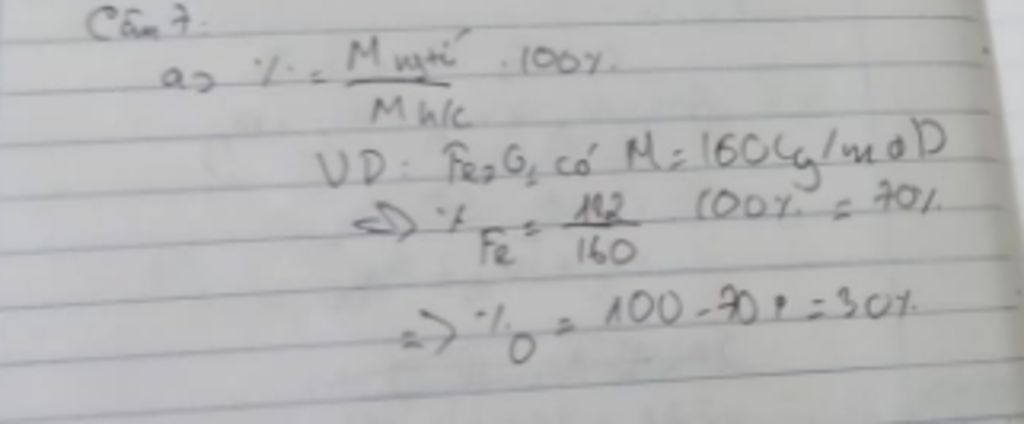 Câu 7.
a> % = M ngtố / M h/c . 100%
VD: Fe2O3 có M = 160(g/mol)
=> % Fe = 112 / 160 100% = 70%
=> % O = 100 - 70 = 30%